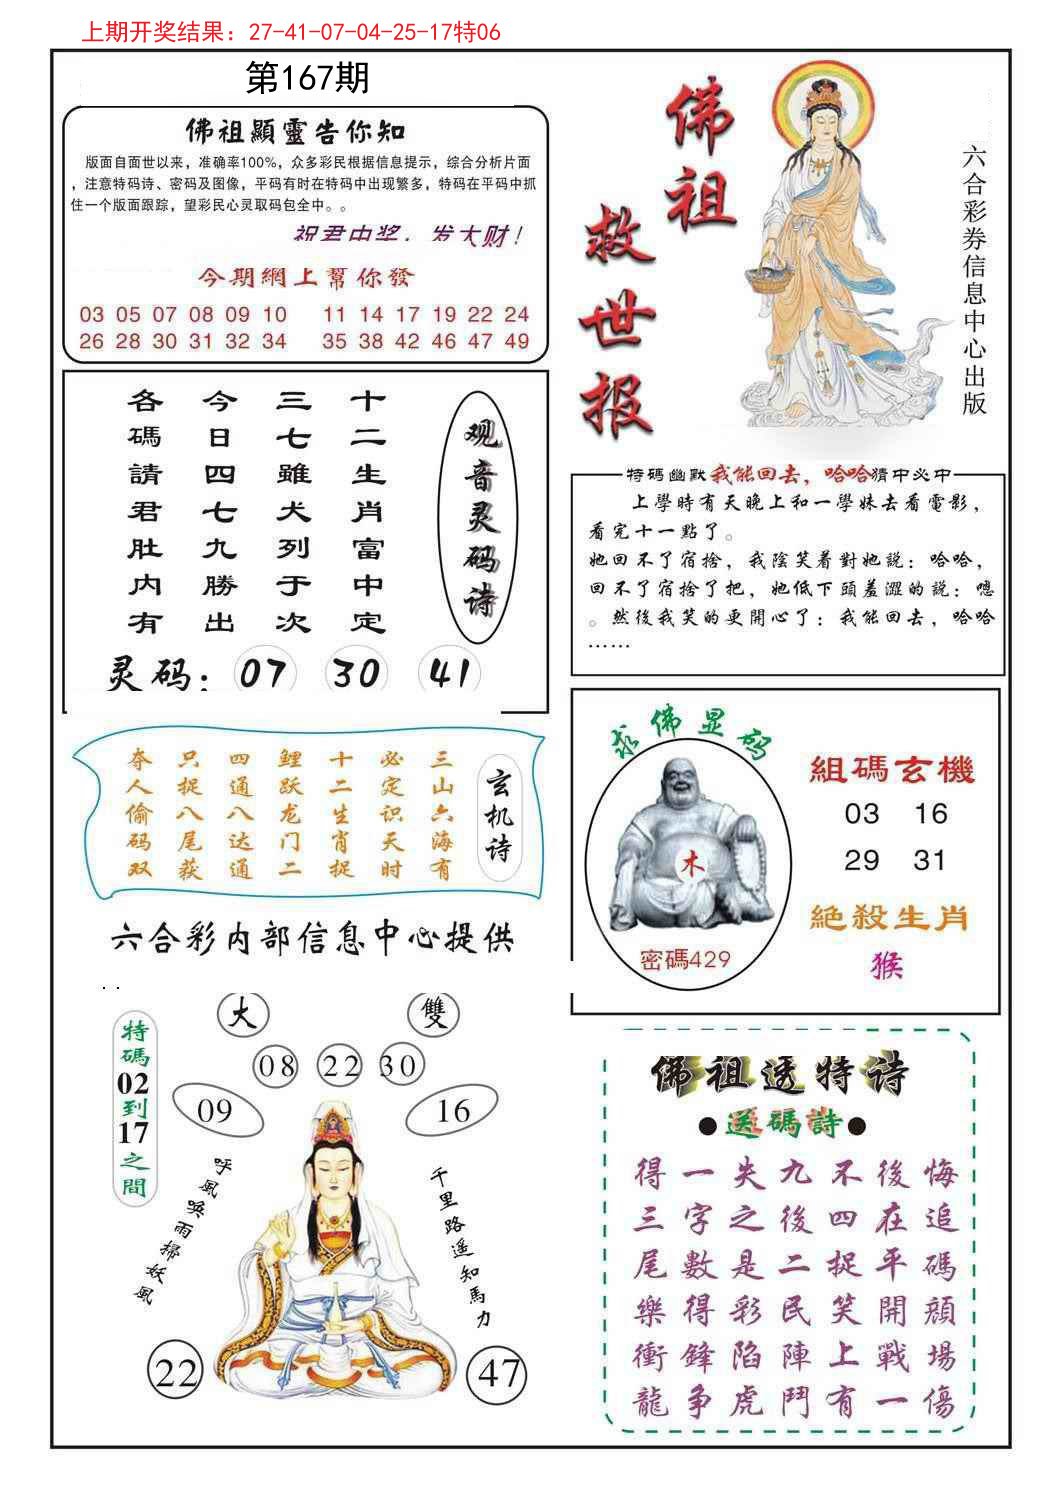 上期开奖结果：27-41-07-04-25-17特06
第167期
佛祖顯靈告你知
版面自面世以来，准确率100%，众多彩民根据信息提示，综合分析片面
，注意特码诗、密码及图像，平码有时在特码中出现繁多，特码在平码中抓
住一个版面跟踪，望彩民心灵取码包全中。。
祝君中奖，发大财！
今期網上幫你發
03 05 07 08 09 10 11 14 17 19 22 24
26 28 30 31 32 34 35 38 42 46 47 49
佛祖
救世报
六合彩券信息中心出版
观音灵码诗
十二生肖富中定
三七雖犬列于次
今日四七九勝出
各碼請君肚内有
灵码：07 30 41
特碼幽默我能回去，哈哈猜中必中
上學時有天晚上和一學妹去看電影，
看完十一點了。
她回不了宿捨，我陰笑着對她説：哈哈，
回不了宿捨了把，她低下頭羞澀的説：嗯
。然後我笑的更開心了：我能回去，哈哈
……
玄机诗
三山六海有
必定识天时
十二生肖捉
鲤跃龙门二
四通八达通
只捉八尾获
夺人偷码双
六合彩内部信息中心提供
求佛显码
木
密碼429
組碼玄機
03 16
29 31
絕殺生肖
猴
大 雙
08 22 30
09 16
特碼02到17之間
呼風唤雨掃妖風
千里路遥知馬力
22 47
佛祖透特诗
●送碼詩●
得一失九不後悔
三字之後四在追
尾數是二捉平碼
樂得彩民笑開顔
衝鋒陷陣上戰場
龍争虎鬥有一傷